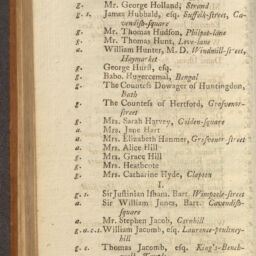 g. Mr. George Holland, Strand
g. s. James Hubbald, esq. Suffolk-street, Ca-
vendish-square
g. Mr. Thomas Hudson, Philpot-lane
g. Mr. Thomas Hunt, Love-lane
William Hunter, M. D. Windmill-street,
Haymarket
g. George Hurst, esq.
g. Babo. Hugercemal, Bengal
g. The Countess Dowager of Huntingdon,
Bath
g. The Countess of Hertford, Grosvenor-
street
g. Mrs. Sarah Harvey, Guiden-square
a. Mrs. Jane Hart
a. Mrs. Elizabeth Hanmer, Grosvenor-street
a. Mrs. Alice Hill
g. Mrs. Grace Hill
g. Mrs. Heathcote
g. Mrs. Catharine Hyde, Clapton
I.
g. s. Sir Justinian Isham, Bart. Wimpole-street
a. Sir William James, Bart. Cavendish-
square
a. Mr. Stephen Jacob, Cornhill
g. a. c. s. William Jacomb, esq. Laurence-poultney-
hill
g. c. s. Thomas Jacomb, esq. King's-Bench-